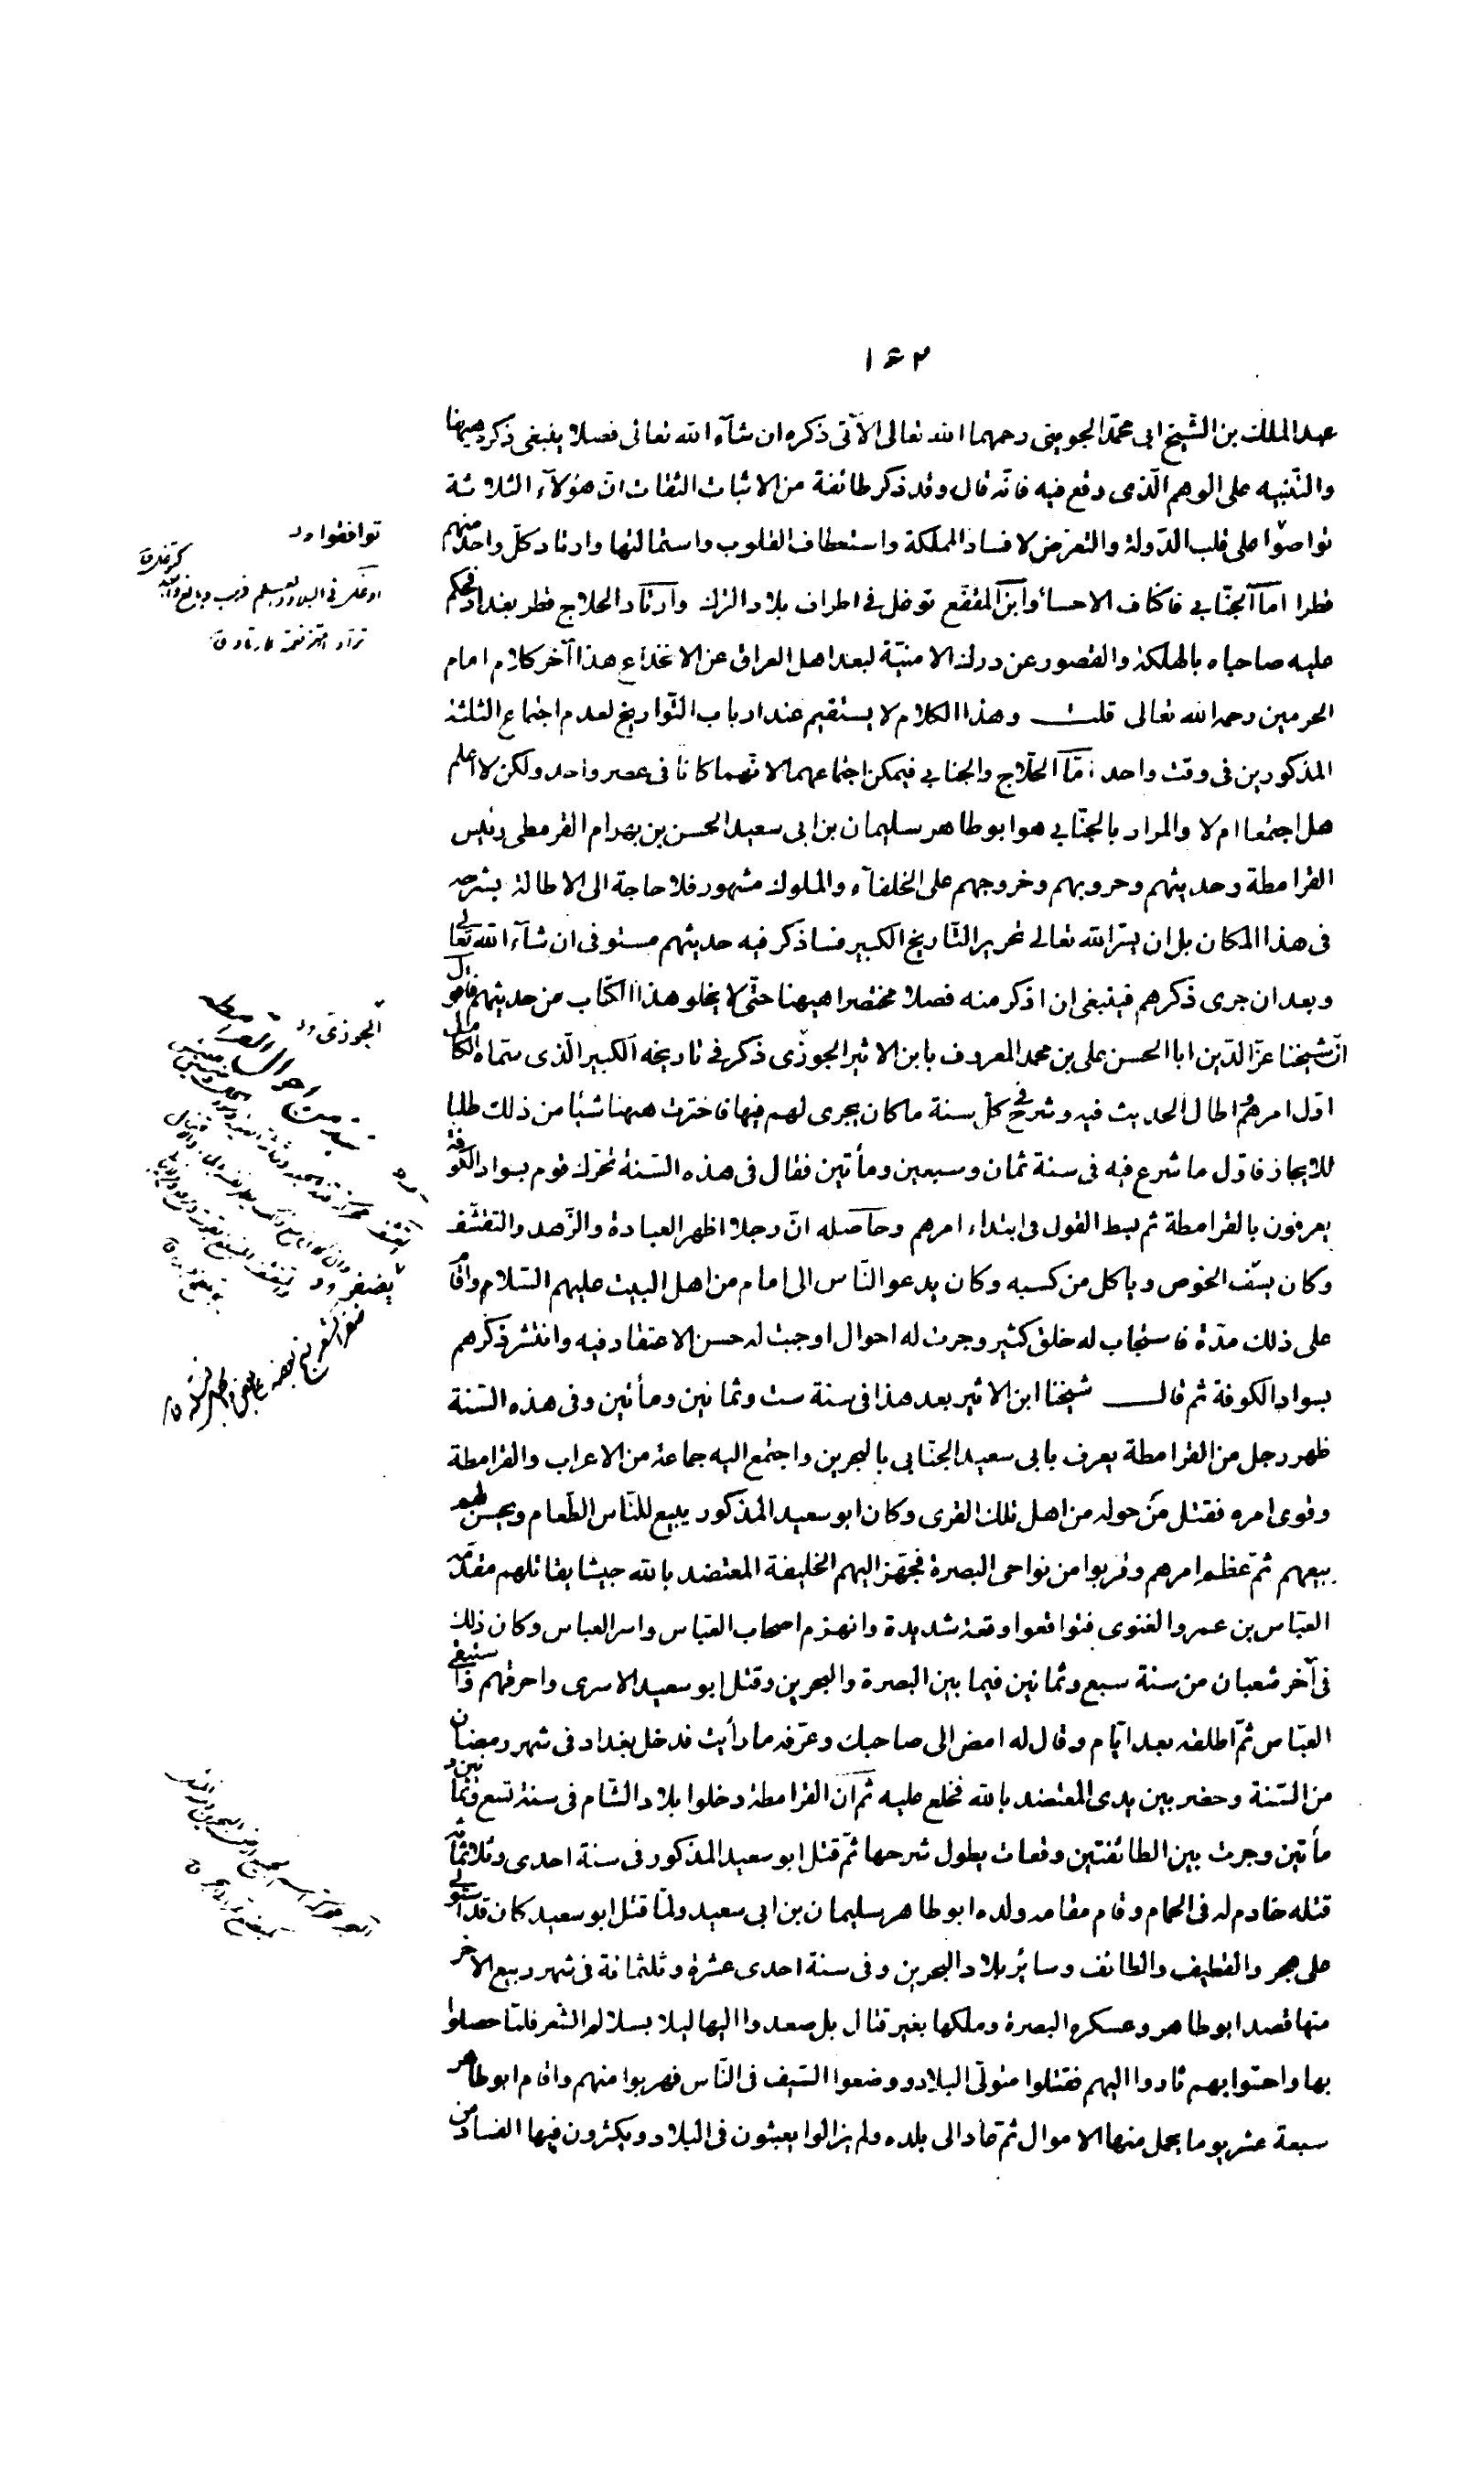 ١٦٢
عبد الملك بن الشّيخ ابى محمّد الجوينى رحمهما الله تعالى الآتى ذكره ان شآء الله تعالى فصلا ينبغى ذكره هيهنا
والتّنبيه على الوهم الّذى وقع فيه فانّه قال وقد ذكر طائفة من الاثبات الثقات انّ هؤلآء الثلاثة
تواصوا على قلب الدّولة والتعرّض لافساد المملكة واستعطاف القلوب واستمالتها وارتاد كلّ واحد منهم
قطرا امّا الجنّابى فاكناف الاحساء وابن المقفّع توغل فى اطراف بلاد الترك وارتاد الحلاج قطر بغداد فحكم
عليه صاحباه بالهلكة والقصور عن درك الامنيّة لبعد اهل العراق عن الانخداع هذا آخر كلام امام
الحرمين رحمه الله تعالى قلت وهذا الكلام لا يستقيم عند ارباب التّواريخ لعدم اجتماع الثلثة
المذكورين فى وقت واحد امّا الحلّاج والجنابى فيمكن اجتماعهما لانّهما كانا فى عصر واحد ولكن لا اعلم
هل اجتمعا ام لا والمراد بالجنّابى هو ابو طاهر سليمان بن ابى سعيد الحسن بن بهرام القرمطى رئيس
القرامطة وحديثهم وحروبهم وخروجهم على الخلفآء والملوك مشهور فلا حاجة الى الاطالة بشرحه
فى هذا المكان بل ان يسّر الله تعالى تحرير التّاريخ الكبير فساذكر فيه حديثهم مستوفى ان شآء الله تعالى
وبعد ان جرى ذكرهم فينبغى ان اذكر منه فصلا مختصرا هيهنا حتّى لا يخلو هذا الكتاب من حديثهم فاقول
انّ شيخنا عزّ الدّين ابا الحسن على بن محمد المعروف بابن الاثير الجوزى ذكر فى تاريخه الكبير الّذى سمّاه الكامل
اوّل امرهم واطال الحديث فيه وشرح فى كلّ سنة ما كان يجرى لهم فيها فاخترت ههنا شيئا من ذلك طلبا
للايجاز فاوّل ما شرع فيه فى سنة ثمان وسبعين ومأتين فقال فى هذه السّنة تحرّك قوم بسواد الكوفة
يعرفون بالقرامطة ثم بسط القول فى ابتداء امرهم وحاصله انّ رجلا اظهر العبادة والزّهد والتقشّف
وكان يسّف الخوص وياكل من كسبه وكان يدعو النّاس الى امام من اهل البيت عليهم السّلام واقام
على ذلك مدّة فاستجاب له خلق كثير وجرت له احوال اوجبت له حسن الاعتقاد فيه وانتشر ذكرهم
بسواد الكوفة ثم قال شيخنا ابن الاثير بعد هذا فى سنة ست وثمانين ومأتين وفى هذه السّنة
ظهر رجل من القرامطة يعرف بابى سعيد الجنّابى بالبحرين واجتمع اليه جماعة من الاعراب والقرامطة
وقوى امره فقتل من حوله من اهل تلك القرى وكان ابو سعيد المذكور يبيع للنّاس الطّعام ويحسن لهم
بيعهم ثمّ عظم امرهم وقربوا من نواحى البصرة فجهّز اليهم الخليفة المعتضد بالله جيشا يقاتلهم مقدّمه
العبّاس بن عمرو الغنوى فتواقعوا وقعة شديدة وانهزم اصحاب العبّاس واسر العباس وكان ذلك
فى آخر شعبان من سنة سبع وثمانين فيما بين البصرة والبحرين وقتل ابو سعيد الاسرى واحرقهم واستبقى
العبّاس ثمّ اطلقه بعد ايّام وقال له امض الى صاحبك وعرّفه ما رأيت فدخل بغداد فى شهر رمضان
من السّنة وحضر بين يدى المعتضد بالله فخلع عليه ثمّ ان القرامطة دخلوا بلاد الشّام فى سنة تسع وثمانين و
مأتين وجرت بين الطائفتين وقعات يطول شرحها ثمّ قتل ابو سعيد المذكور فى سنة احدى وثلاثمائة
قتله خادم له فى الحمام وقام مقامه ولده ابو طاهر سليمان بن ابى سعيد ولمّا قتل ابو سعيد كان قد استولى
على هجر والقطيف والطائف وسائر بلاد البحرين وفى سنة احدى عشرة وثلثمائة فى شهر ربيع الآخر
منها قصد ابو طاهر وعسكره البصرة وملكها بغير قتال بل صعدوا اليها ليلا بسلالم الشّعر فلمّا حصلوا
بها واحسّوا بهم ثاروا اليهم فقتلوا متولّى البلاد ووضعوا السّيف فى النّاس فهربوا منهم واقام ابو طاهر
سبعة عشر يوما يحمل منها الاموال ثمّ عاد الى بلده ولم يزالوا يعيثون فى البلاد ويكثرون فيها الفساد من
توافقوا
الجوزى
يضفر